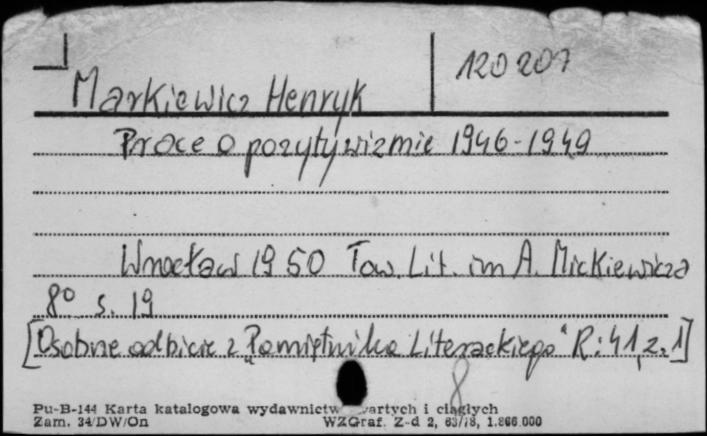 120207
Markiewicz Henryk
Prace o pozytywizmie 1946-1949
Wrocław 1950 Tow. Lit. im A. Mickiewicza
8° s. 19
[Osobne odbicie z "Pamiętnika Literackiego" R: 41, z. 1]
8
Pu-B-144 Karta katalogowa wydawnictw i ciągłych
Zam. 34/DW/On WZGraf. Z-d 2, 63/78, 1.866.000